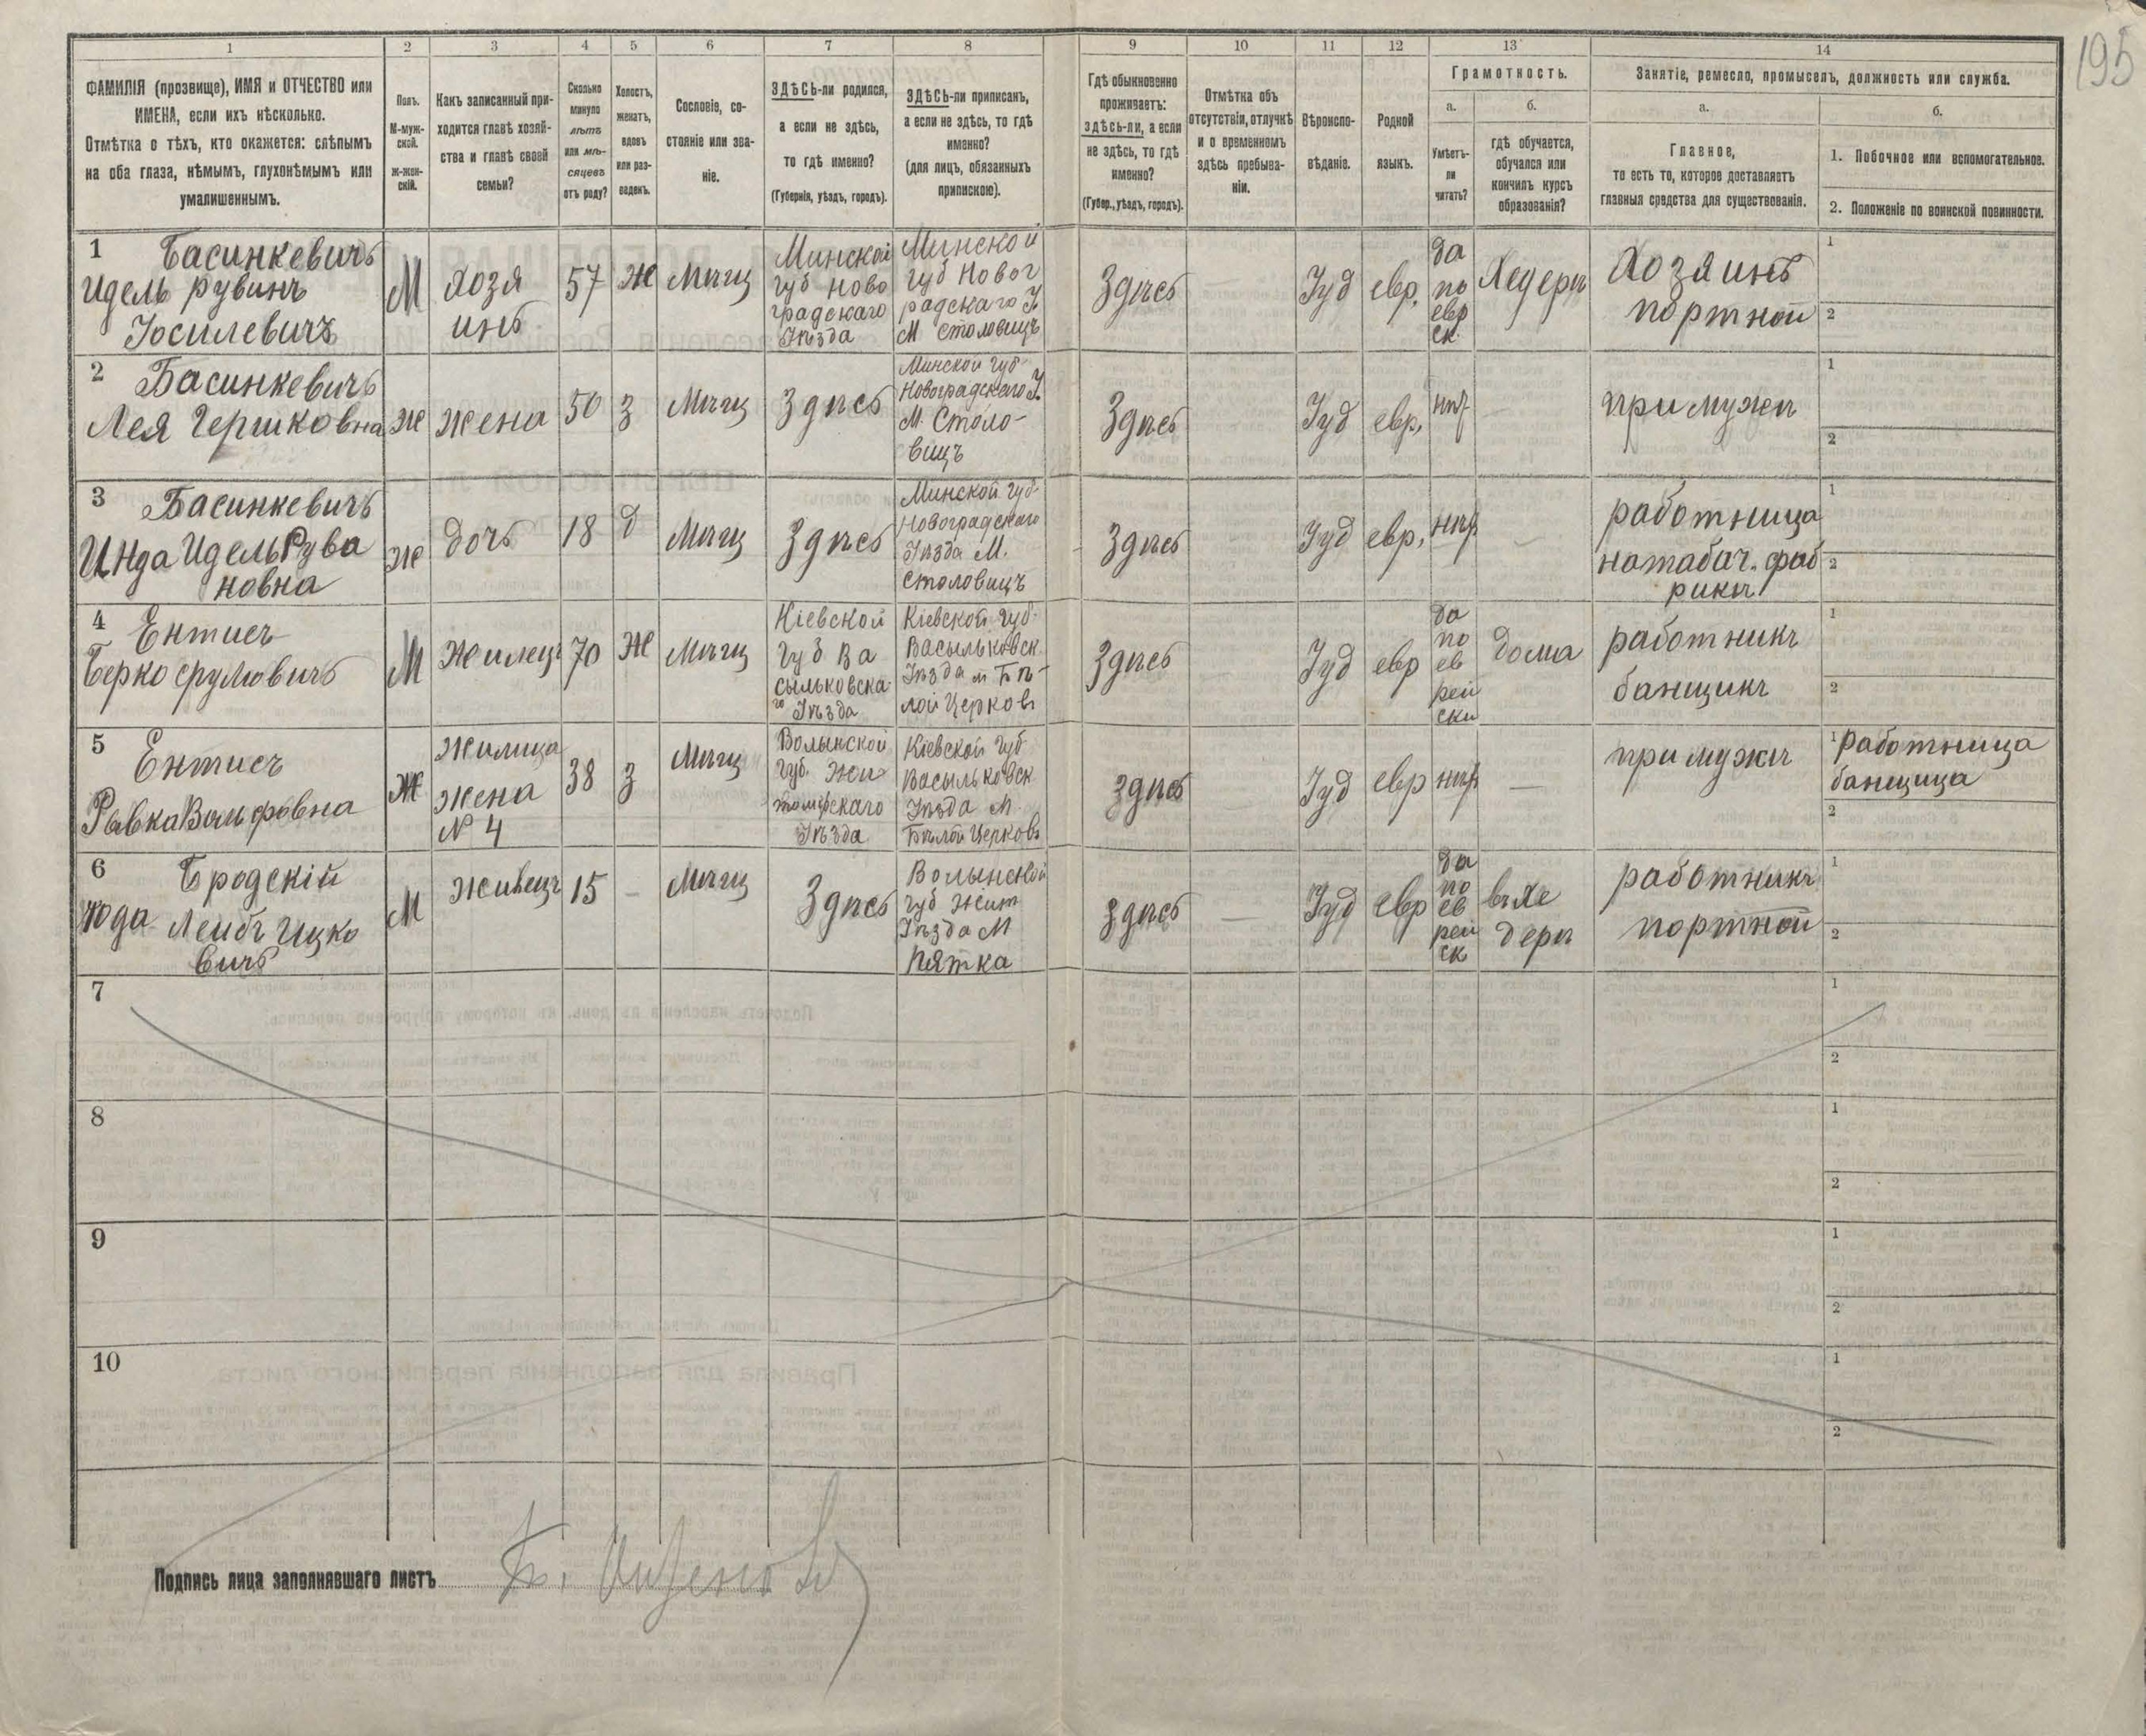 195
1 2 3 4 5 6 7 8 9 10 11 12 13 14
ФАМИЛІЯ (прозвище), ИМЯ и ОТЧЕСТВО или
ИМЕНА, если ихъ нѣсколько.
Отмѣтка о тѣхъ, кто окажется: слѣпымъ
на оба глаза, нѣмымъ, глухонѣмымъ или
умалишеннымъ.
Полъ.
М-муж-
ской.
ж-жен-
скій.
Какъ записанный при-
ходится главѣ хозяй-
ства и главѣ своей
семьи?
Сколько
минуло
лѣтъ
или мѣ-
сяцевъ
отъ роду?
Холостъ,
женатъ,
вдовъ
или раз-
веденъ.
Сословіе, со-
стояніе или зва-
ніе.
ЗДѢСЬ-ли родился,
а если не здѣсь,
то гдѣ именно?
(Губернія, уѣздъ, городъ).
ЗДѢСЬ-ли приписанъ,
а если не здѣсь, то гдѣ
именно?
(для лицъ, обязанныхъ
припискою).
Гдѣ обыкновенно
проживаетъ:
здѣсь-ли, а если
не здѣсь, то гдѣ
именно?
(Губер., уѣздъ, городъ).
Отмѣтка объ
отсутствіи, отлучкѣ
и о временномъ
здѣсь пребыва-
ніи.
Вѣроиспо-
вѣданіе.
Родной
языкъ.
Грамотность.
а.
Умѣетъ-
ли
читать?
б.
гдѣ обучается,
обучался или
кончилъ курсъ
образованія?
Занятіе, ремесло, промыселъ, должность или служба.
а.
Главное,
то есть то, которое доставляетъ
главныя средства для существованія.
б.
1. Побочное или вспомогательное.
2. Положеніе по воинской повинности.
1 Басинкевичъ
Идель рувинъ
Іосилевичъ
М
Хозя
инъ
57
Ж
Мѣщ
Минской
губ Ново
градскаго
Уѣзда
Минской
губ Новог
радскаго У
М Столовицъ
Здѣсь
Іуд
евр.
да
по
евр
ск.
Хедерѣ
Хозяинъ
портной
1
2
2 Басинкевичъ
Лея Гершковна
Ж
Жена
50
З
Мѣщ
Здѣсь
Минской губ
Новоградскаго У.
М. Столо-
вицъ
Здѣсь
Іуд
евр,
нѣт
при мужѣ
1
2
3 Басинкевичъ
Инда Идель Рува
новна
Ж
дочь
18
д
Мѣщ
Здѣсь
Минской губ
Новоградскаго
Уѣзда М.
Столовицъ
Здѣсь
Іуд
евр,
нѣт
работница
натабач. фаб
рикѣ
1
2
4 Ентисъ
Берко Сруловичъ
М
Жилецъ
70
Ж
Мѣщ
Кіевской
губ Ва
сыльковска
го Уѣзда
Кіевской губ
Васыльковск
Уѣзда м Бѣ-
лой Церковь
Здѣсь
Іуд
евр
да
по
ев
рей
ски
дома
работникъ
банщикъ
1
2
5 Ентисъ
Рывка Вольфовна
Ж
Жилица
жена
№ 4
38
З
Мѣщ
Волынской
губ. Жи
томірскаго
Уѣзда
Кіевской губ
Васыльковск
Уѣзда М
Бѣлой Церковь
Здѣсь
Іуд
евр
нѣт
—
при мужѣ
1 Работница
банщица
2
6 Бродскій
Юда Лейбъ Ицко
вичъ
М
Живецъ
15
-
Мѣщ
Здѣсь
Волынской
губ Жит
Уѣзда М
Пятка
Здѣсь
—
Іуд
евр
да
по
ев
рей
ск
въ Хе
дерѣ
работникъ
портной
1
2
7
1
2
8
1
2
9
1
2
10
1
2
Подпись лица заполнявшаго листъ